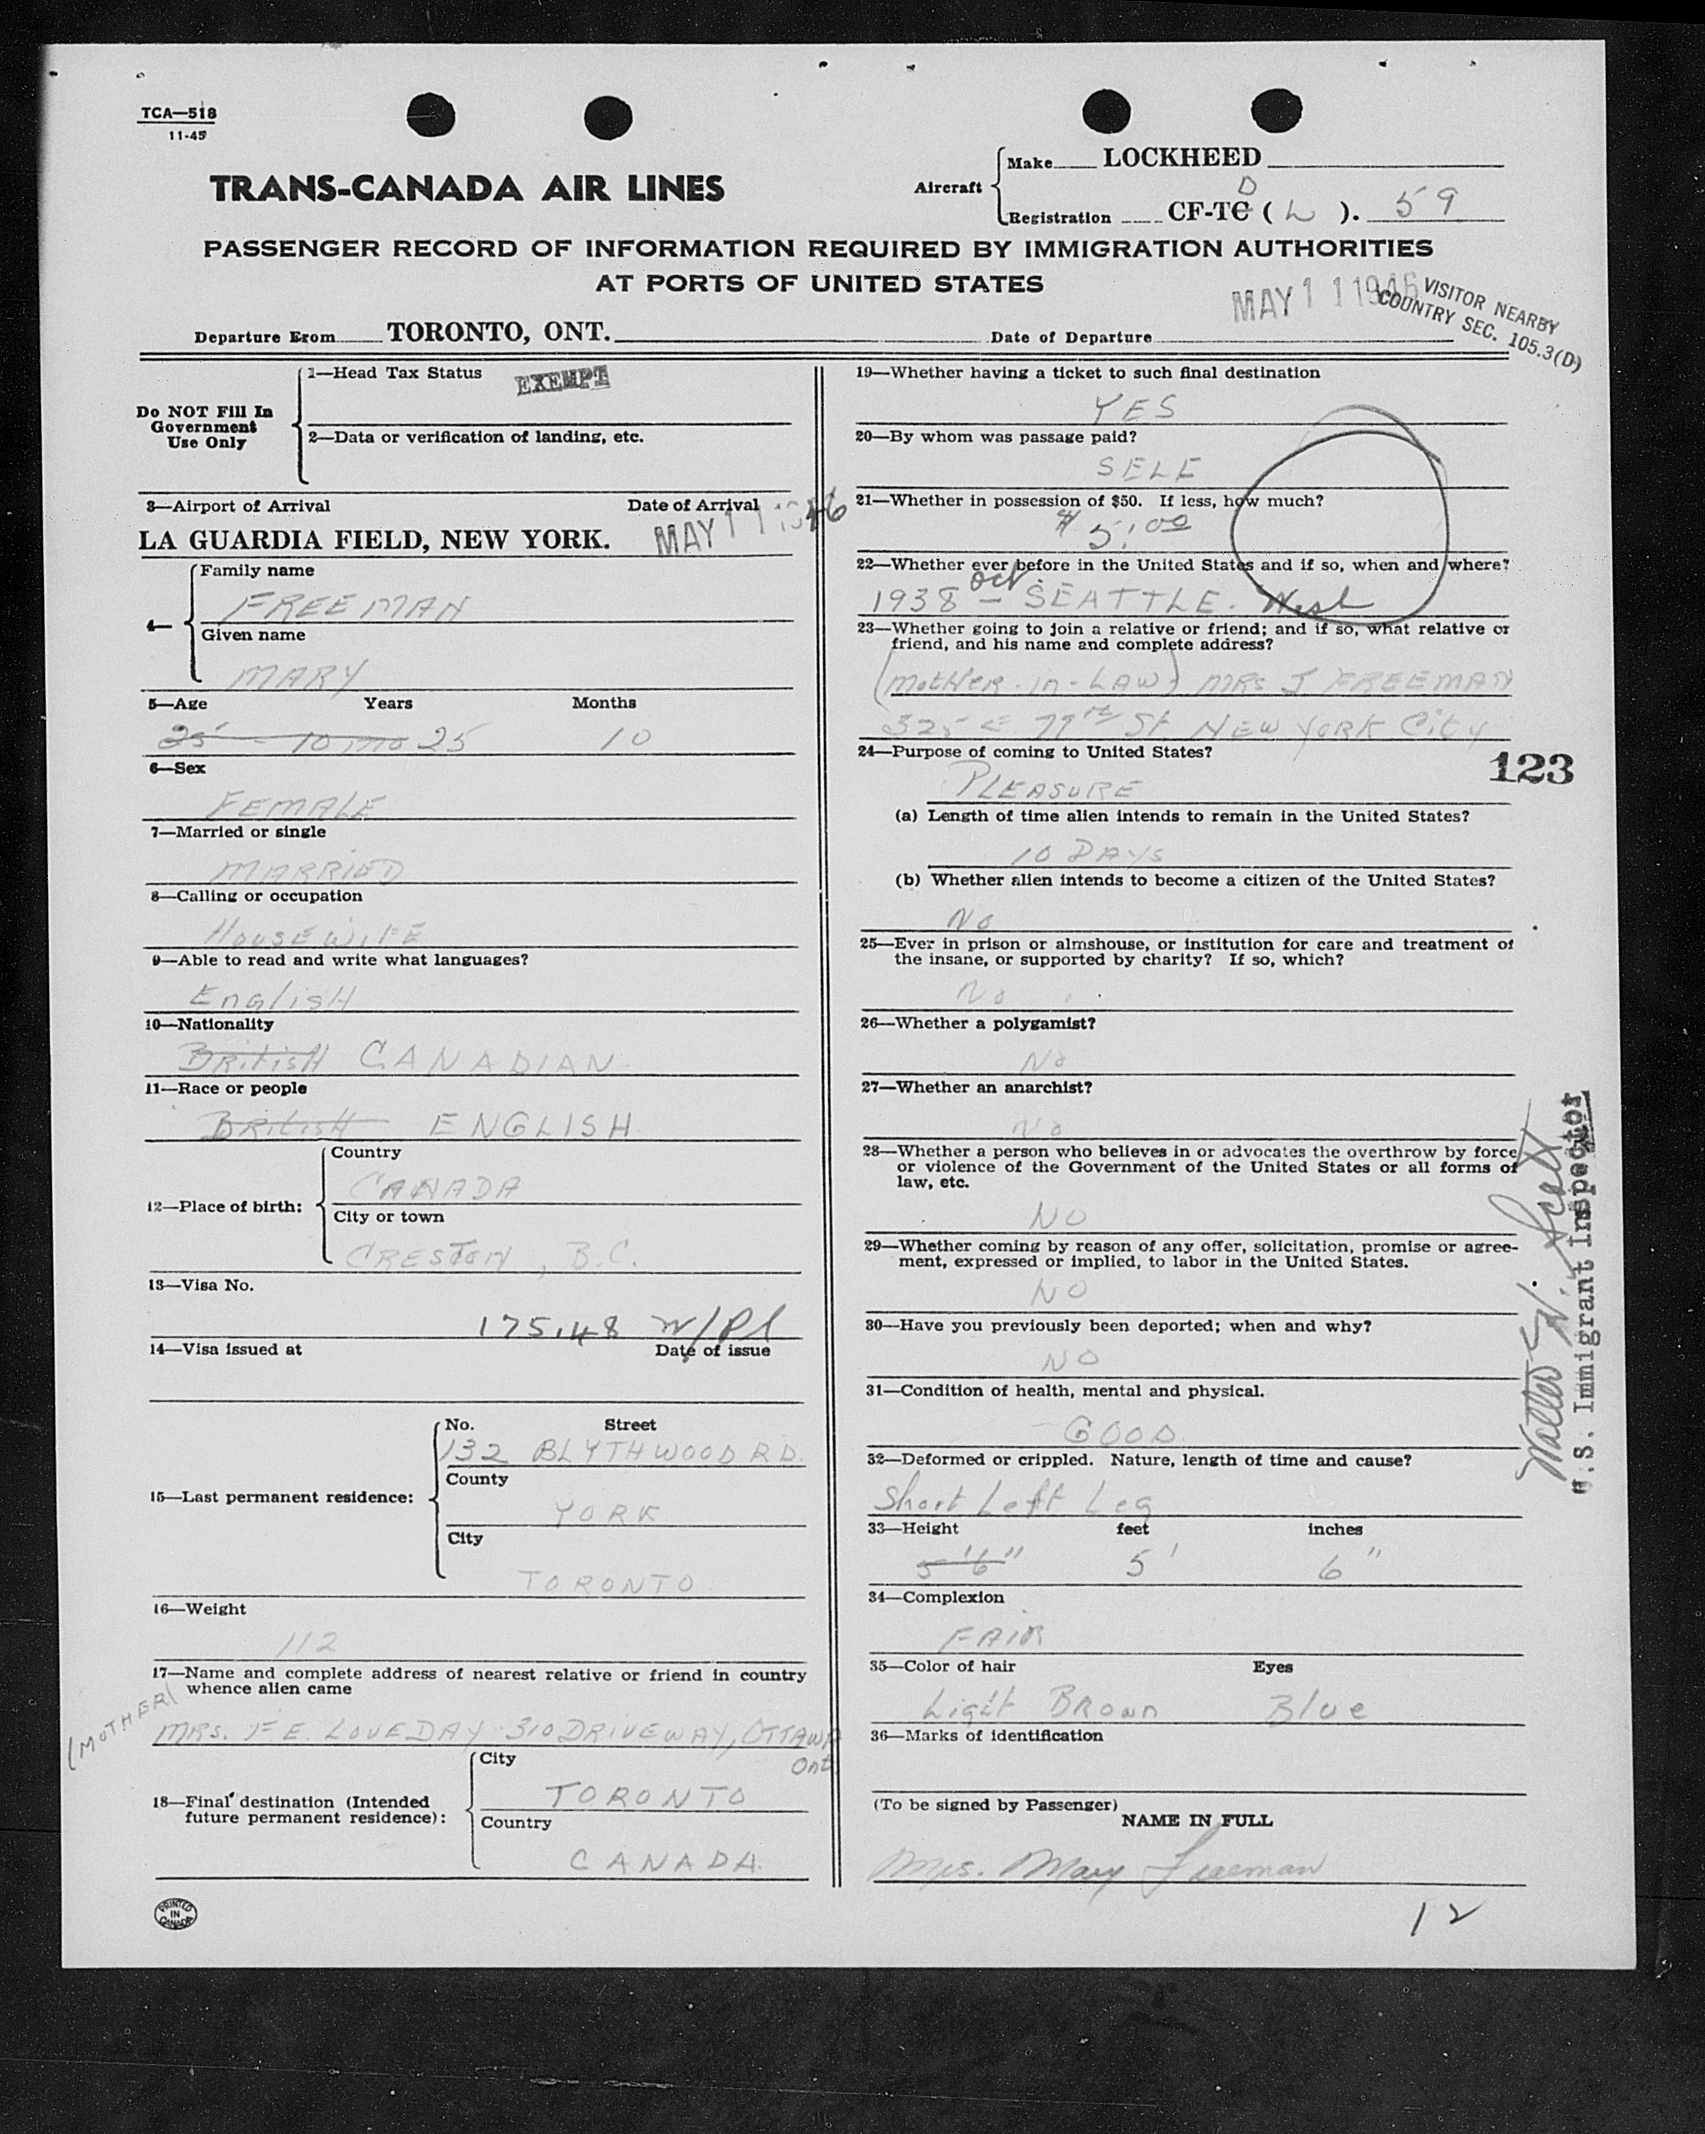 TCA—518
11-45
TRANS-CANADA AIR LINES
Aircraft
Make LOCKHEED
D
Registration CF-TC ( L ). 59
PASSENGER RECORD OF INFORMATION REQUIRED BY IMMIGRATION AUTHORITIES
AT PORTS OF UNITED STATES
MAY 11 1946
VISITOR NEARBY
COUNTRY SEC. 105.3(D)
Departure From TORONTO, ONT. Date of Departure
Do NOT Fill In
Government
Use Only
1—Head Tax Status EXEMPT
2—Data or verification of landing, etc.
3—Airport of Arrival Date of Arrival
LA GUARDIA FIELD, NEW YORK. MAY 11 1946
4—
Family name
FREEMAN
Given name
MARY
5—Age Years Months
25 - 10 mo 25 10
6—Sex
FEMALE
7—Married or single
MARRIED
8—Calling or occupation
HOUSEWIFE
9—Able to read and write what languages?
English
10—Nationality
British CANADIAN
11—Race or people
British ENGLISH
12—Place of birth:
Country
CANADA
City or town
CRESTON, B.C.
13—Visa No.
175.48
14—Visa issued at Date of issue
15—Last permanent residence:
No. Street
132 BLYTHWOOD RD.
County
YORK
City
TORONTO
16—Weight
112
17—Name and complete address of nearest relative or friend in country
whence alien came
(MOTHER)
MRS. F E. LOVEDAY 310 DRIVEWAY, OTTAWA
Ont
18—Final destination (Intended
future permanent residence):
City
TORONTO
Country
CANADA.
PRINTED
IN
CANADA
19—Whether having a ticket to such final destination
YES
20—By whom was passage paid?
SELF
21—Whether in possession of $50. If less, how much?
$ 51.00
22—Whether ever before in the United States and if so, when and where?
Oct.
1938 — SEATTLE. Wash
23—Whether going to join a relative or friend; and if so, what relative or
friend, and his name and complete address?
(Mother-in-LAW) MRS J FREEMAN
325 E 77th St. NEW YORK City
24—Purpose of coming to United States?
123
PLEASURE
(a) Length of time alien intends to remain in the United States?
10 DAYS
(b) Whether alien intends to become a citizen of the United States?
No
25—Ever in prison or almshouse, or institution for care and treatment of
the insane, or supported by charity? If so, which?
No
26—Whether a polygamist?
No
27—Whether an anarchist?
No
28—Whether a person who believes in or advocates the overthrow by force
or violence of the Government of the United States or all forms of
law, etc.
NO
29—Whether coming by reason of any offer, solicitation, promise or agree-
ment, expressed or implied, to labor in the United States.
NO
30—Have you previously been deported; when and why?
NO
31—Condition of health, mental and physical.
GOOD
32—Deformed or crippled. Nature, length of time and cause?
Short Left Leg
33—Height feet inches
5'6" 5' 6"
34—Complexion
FAIR
35—Color of hair Eyes
Light Brown Blue
36—Marks of identification
(To be signed by Passenger)
NAME IN FULL
Mrs. Mary Freeman
12
U.S. Immigrant Inspector